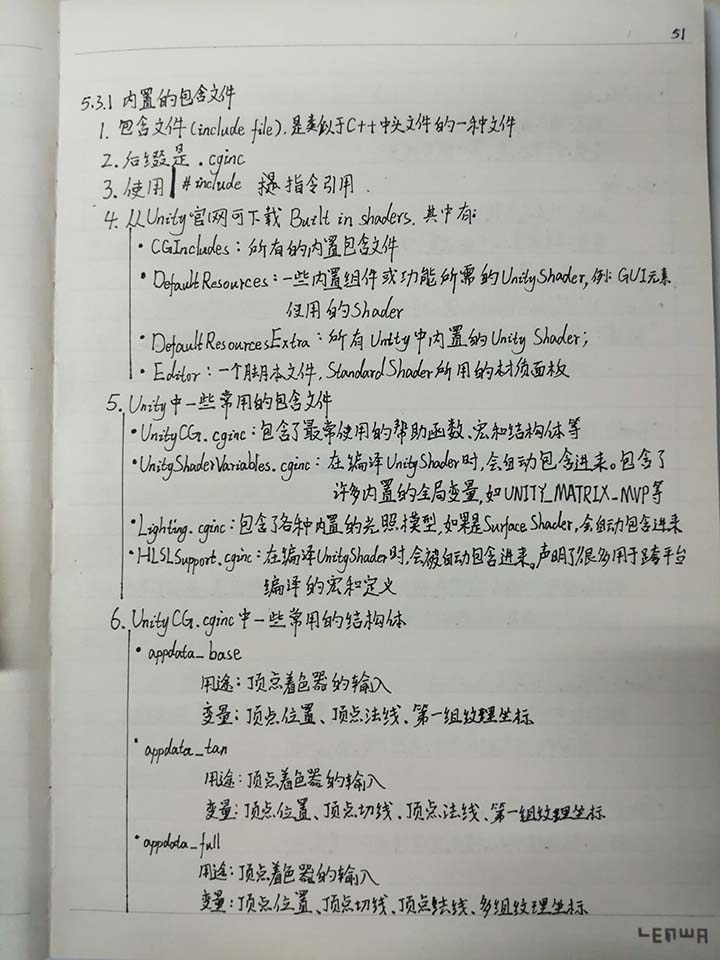 51
5.3.1 内置的包含文件
1. 包含文件(include file),是类似于C++中头文件的一种文件
2. 后缀是 .cginc
3. 使用 #include 指令引用.
4. 从Unity官网可下载 Built in shaders. 其中有:
• CGIncludes: 所有的内置包含文件
• DefaultResources: 一些内置组件或功能所需的UnityShader, 例: GUI元素
使用的Shader
• DefaultResourcesExtra: 所有Unity中内置的Unity Shader;
• Editor: 一个脚本文件, StandardShader所用的材质面板
5. Unity中一些常用的包含文件
• UnityCG.cginc: 包含了最常使用的帮助函数、宏和结构体等
• UnityShaderVariables.cginc: 在编译UnityShader时,会自动包含进来。包含了
许多内置的全局变量,如UNITY_MATRIX_MVP等
• Lighting.cginc: 包含了各种内置的光照模型,如果是Surface Shader,会自动包含进来
• HLSLSupport.cginc: 在编译UnityShader时,会被自动包含进来。声明了很多用于跨平台
编译的宏和定义
6. UnityCG.cginc中一些常用的结构体
• appdata_base
用途: 顶点着色器的输入
变量: 顶点位置、顶点法线、第一组纹理坐标
• appdata_tan
用途: 顶点着色器的输入
变量: 顶点位置、顶点切线、顶点法线、第一组纹理坐标
• appdata_full
用途: 顶点着色器的输入
变量: 顶点位置、顶点切线、顶点法线、多组纹理坐标